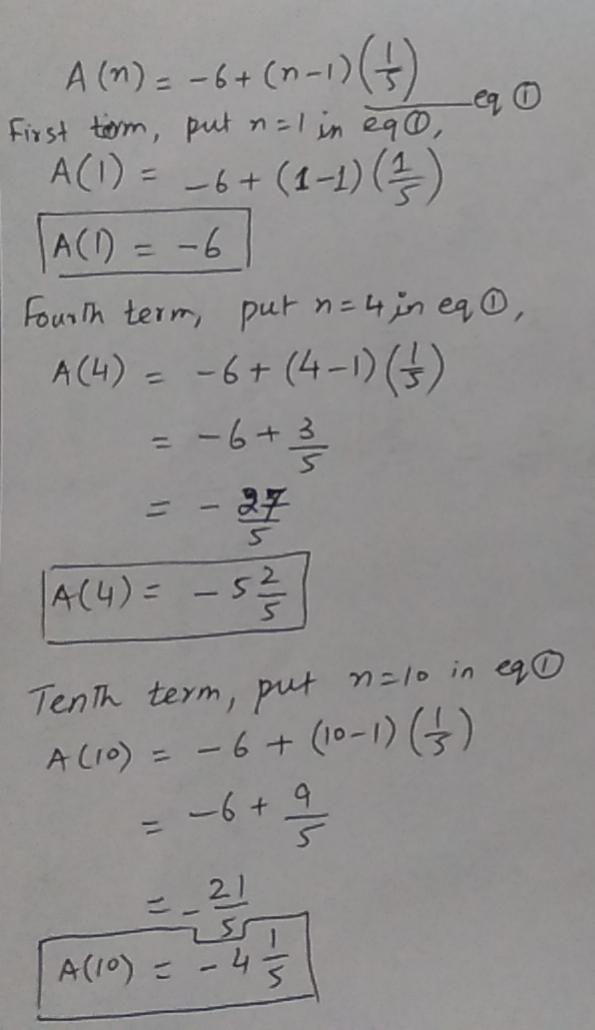 A(n) = -6 + (n-1)(1/5) — eq ①
First term, put n=1 in eq ①,
A(1) = -6 + (1-1)(1/5)
A(1) = -6
Fourth term, put n=4 in eq ①,
A(4) = -6 + (4-1)(1/5)
= -6 + 3/5
= - 27/5
A(4) = -5 2/5
Tenth term, put n=10 in eq ①
A(10) = -6 + (10-1)(1/5)
= -6 + 9/5
= - 21/5
A(10) = -4 1/5